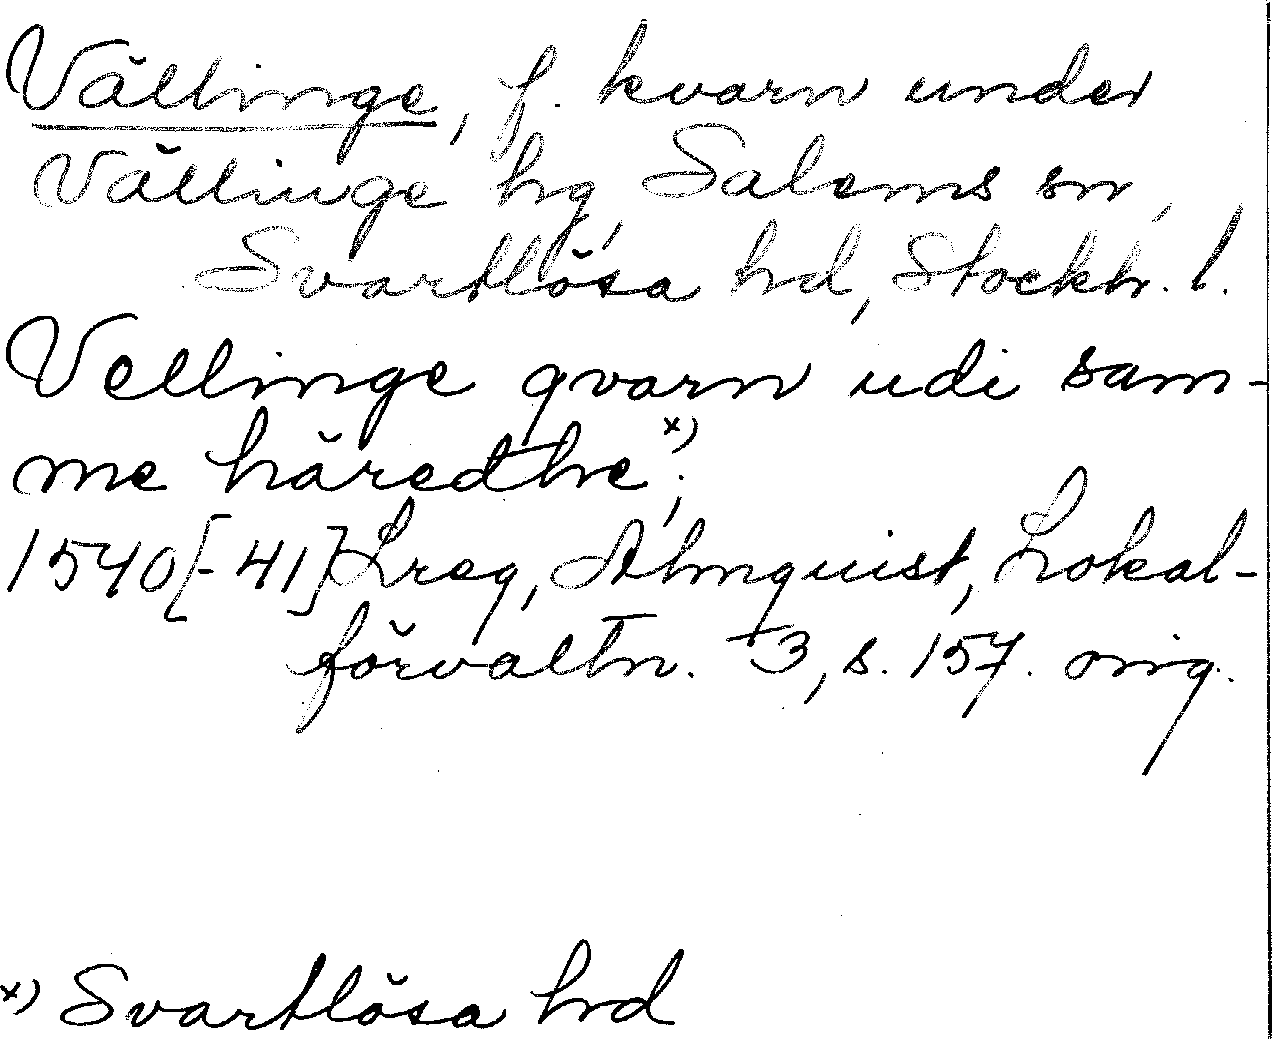 Vällinge, f. kvarn under
Vällinge hg, Salems sn,
Svartlösa hd, Stockh. l.
Vellinge qvarn udi sam-
me häredthe x);
1540[-41] Lreg, Almquist, Lokal-
förvaltn. 3, s. 157. orig.
x) Svartlösa hd